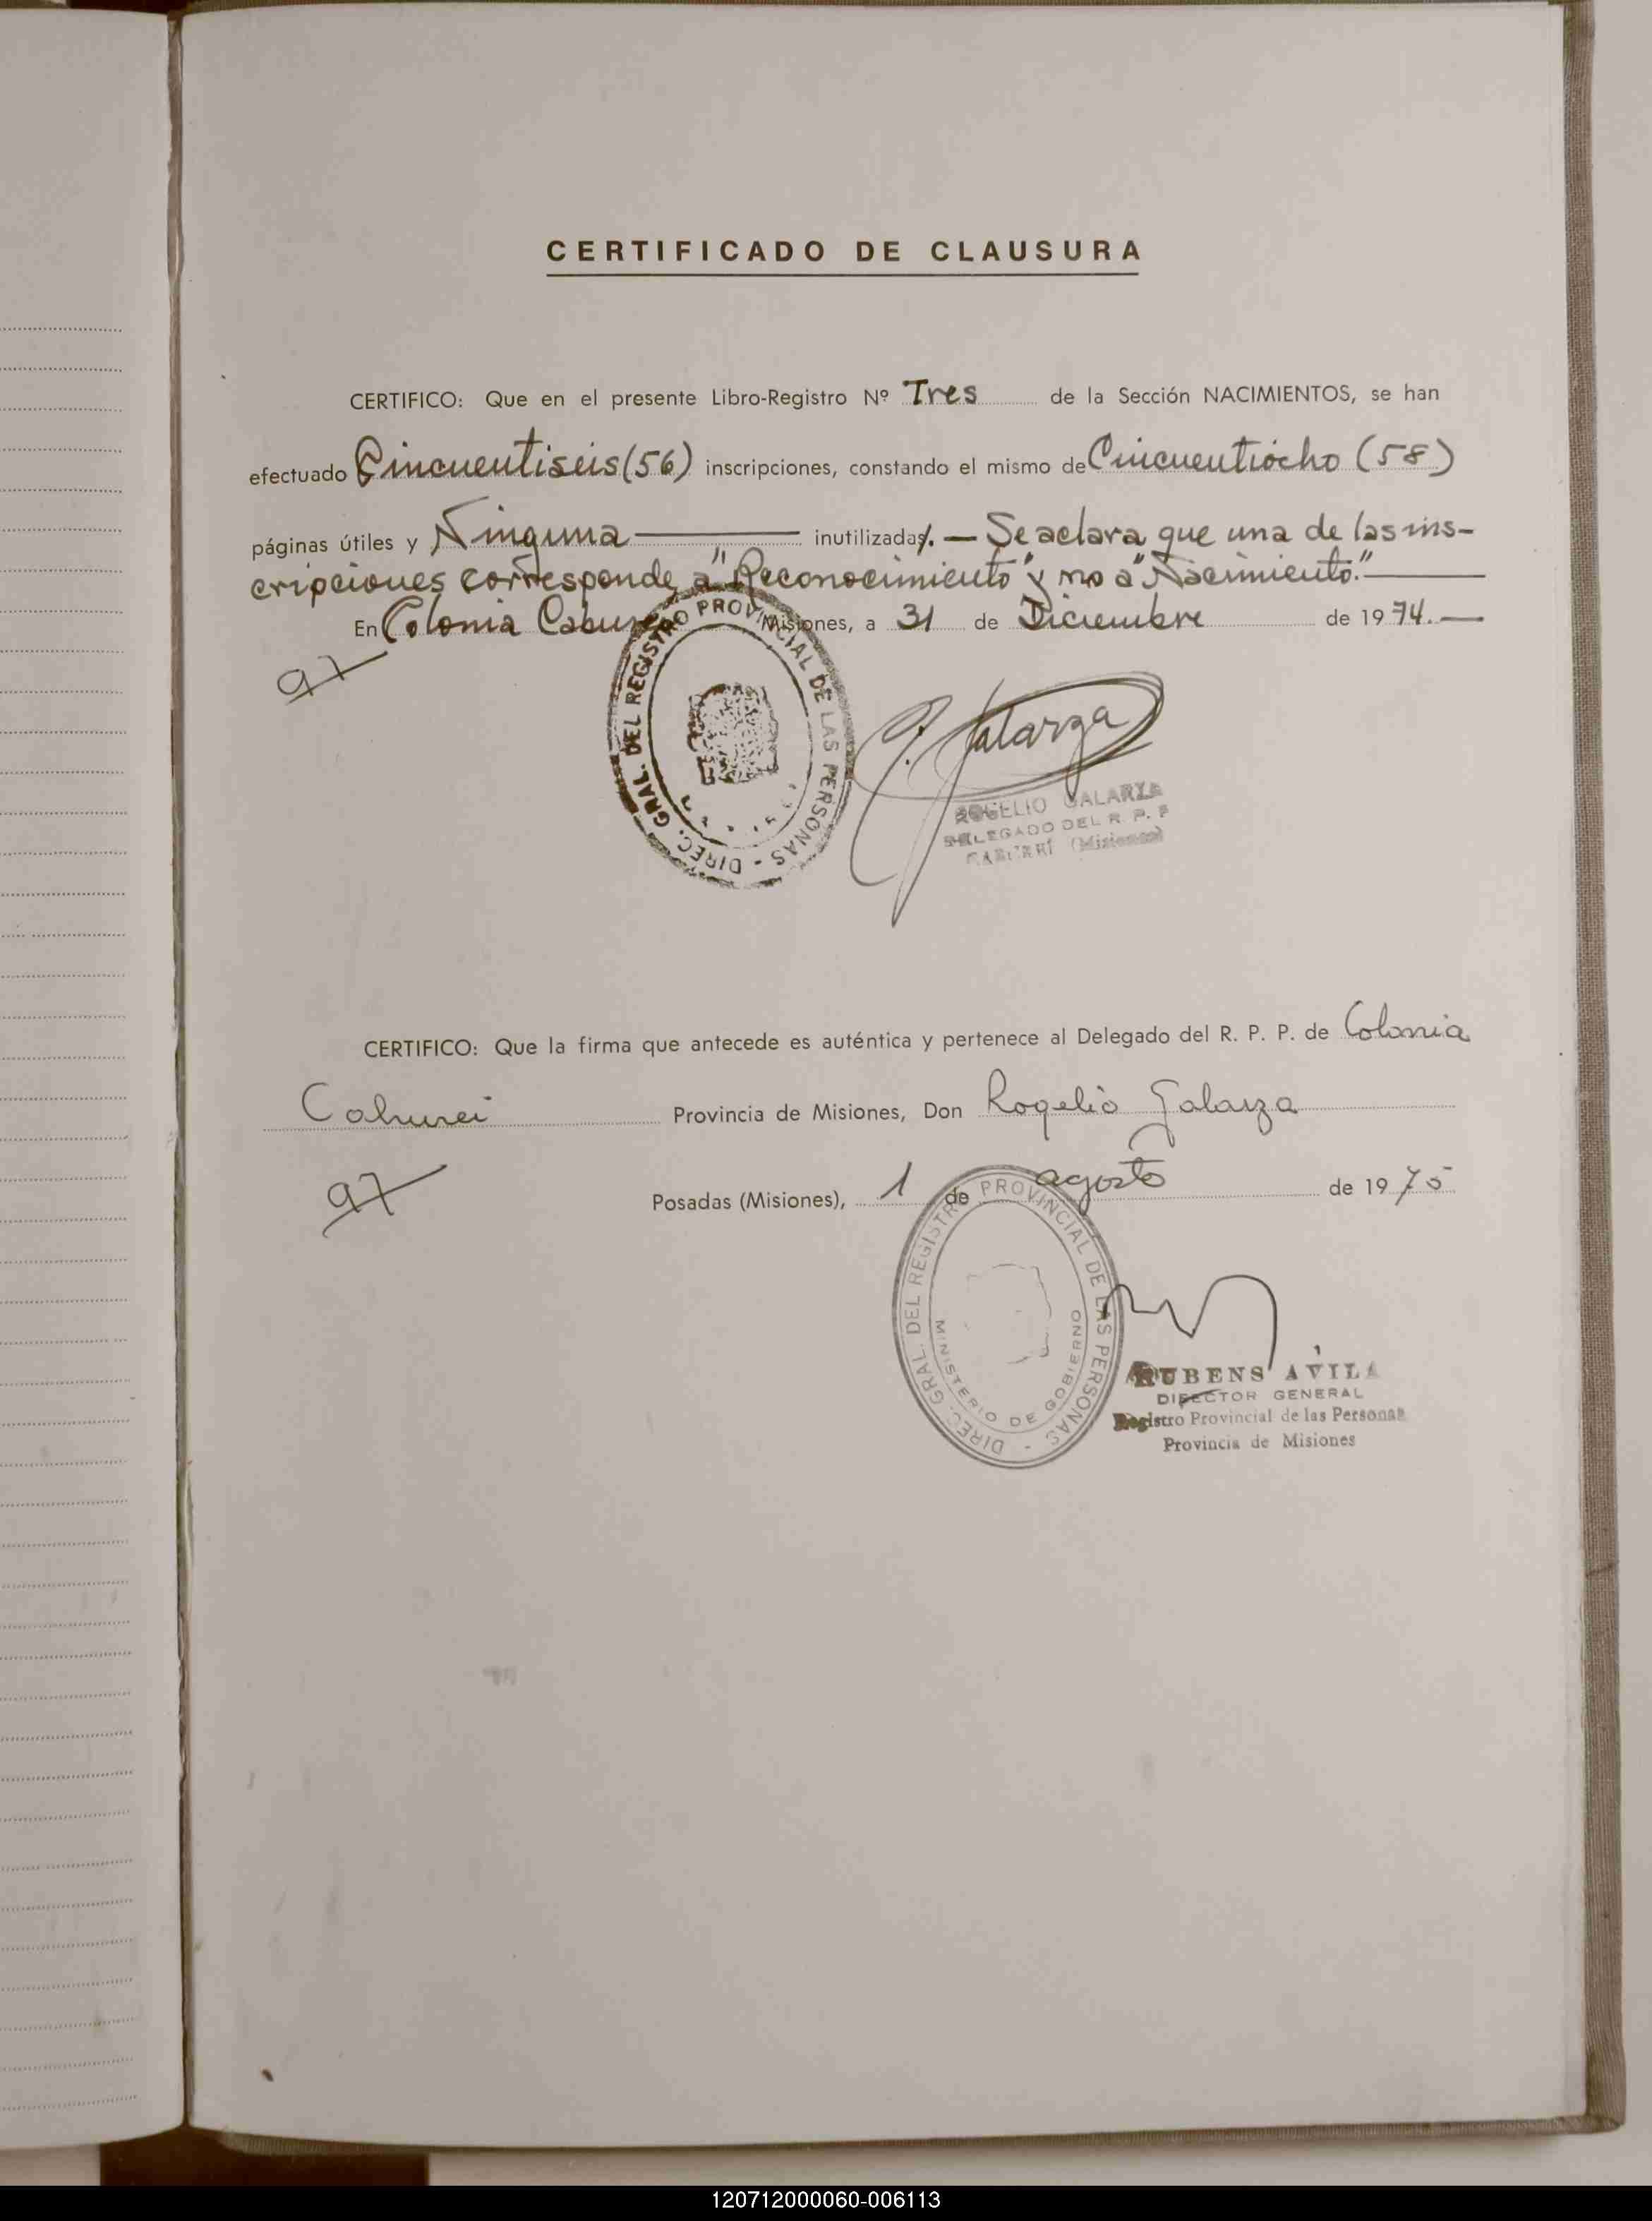 CERTIFICADO DE CLAUSURA
CERTIFICO: Que en el presente Libro-Registro Nº Tres de la Sección NACIMIENTOS, se han
efectuado Cincuentiseis (56) inscripciones, constando el mismo de Cincuentiocho (58)
páginas útiles y Ninguna inutilizadas. — Se aclara que una de las ins-
cripciones corresponde a "Reconocimiento" y no a "Nacimiento."
En Colonia Misiones, a 31 de Diciembre de 1974. —
97
DIREC. GRAL. DEL REGISTRO PROVINCIAL DE LAS PERSONAS -
Galarza
ROGELIO GALARZA
DELEGADO DEL R. P. P
CABUREÍ (Misiones)
CERTIFICO: Que la firma que antecede es auténtica y pertenece al Delegado del R. P. P. de Colonia
Caburei Provincia de Misiones, Don Rogelio Galarza
97
Posadas (Misiones), 1 de agosto de 1975
DIREC. GRAL. DEL REGISTRO PROVINCIAL DE LAS PERSONAS -
MINISTERIO DE GOBIERNO
RUBENS AVILA
DIRECTOR GENERAL
Registro Provincial de las Personas
Provincia de Misiones
120712000060-006113